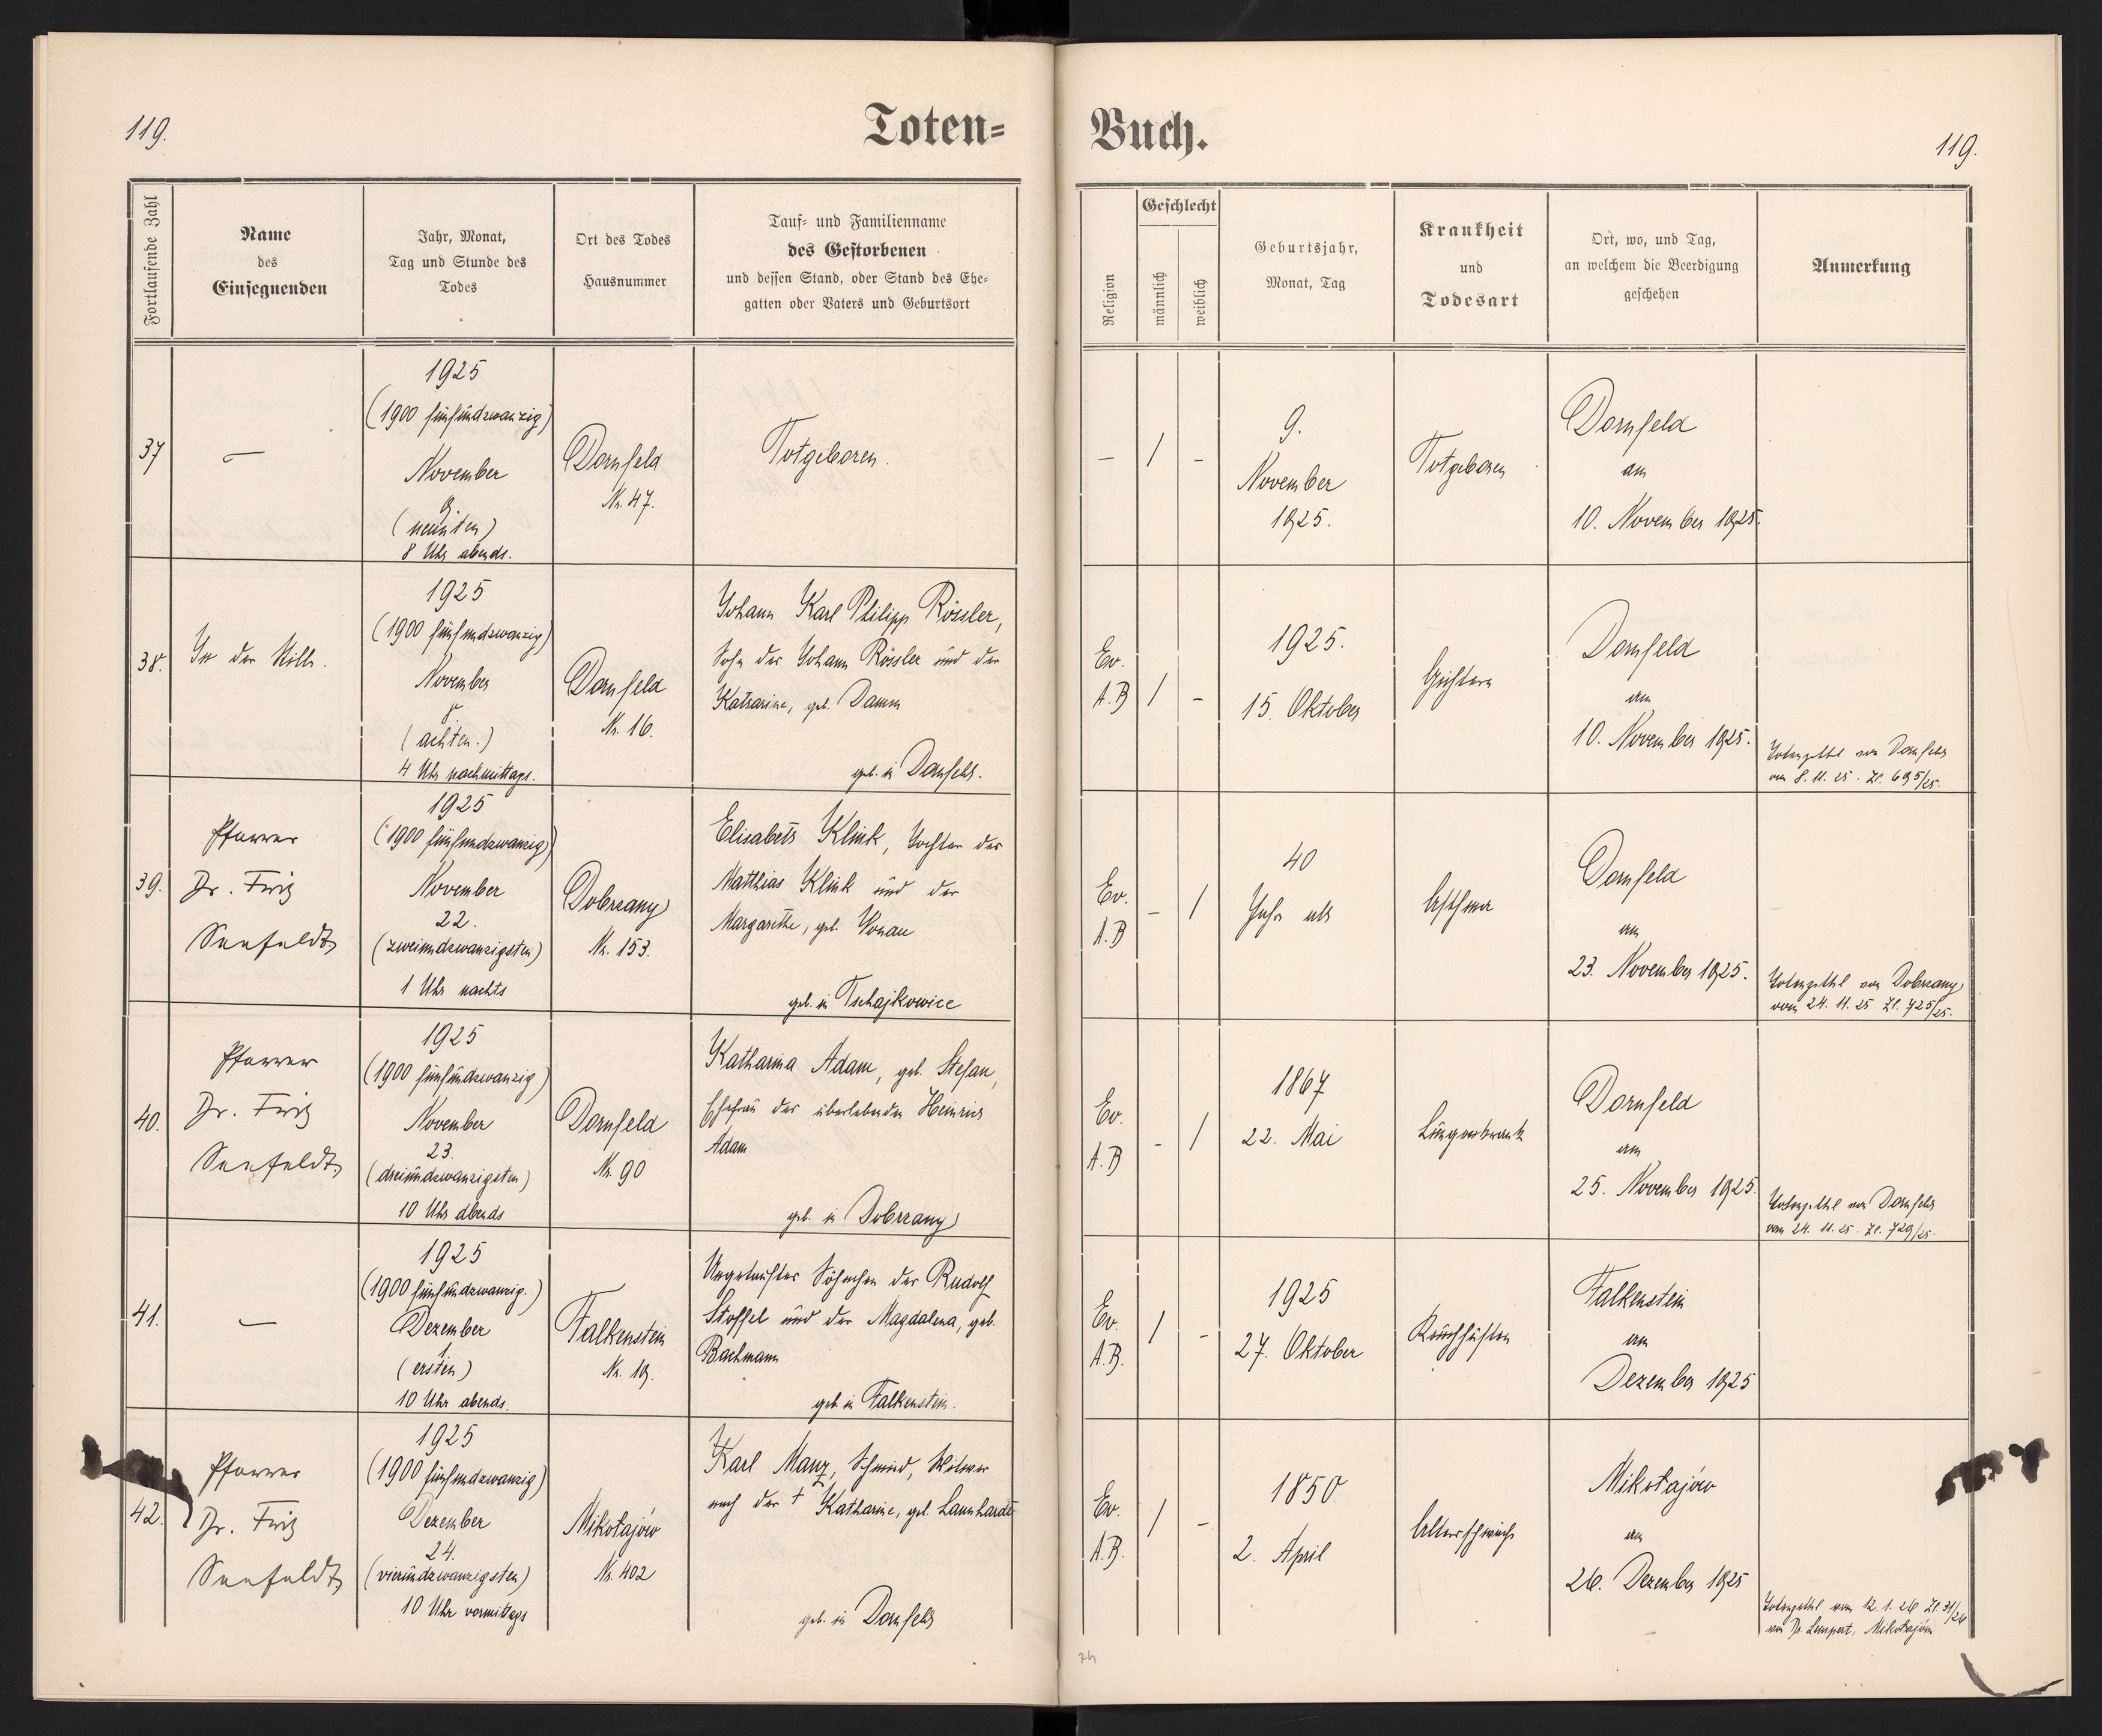 119.
Toten=
Buch.
119.
Fortlaufende Zahl
Name
des
Einsegnenden
Jahr, Monat,
Tag und Stunde des
Todes
Ort des Todes
Hausnummer
Tauf= und Familienname
des Gestorbenen
und dessen Stand, oder Stand des Ehe=
gatten oder Vaters und Geburtsort
Religion
Geschlecht
männlich
weiblich
Geburtsjahr,
Monat, Tag
Krankheit
und
Todesart
Ort, wo, und Tag,
an welchem die Beerdigung
geschehen
Anmerkung
37
—
1925
(1900 fünfundzwanzig)
November
9.
(neunten)
8 Uhr abends.
Dornfeld
Nr. 47.
Totgeboren.
—
/
-
9.
November
1925.
Totgeboren
Dornfeld
am
10. November 1925.
38.
In der Stille.
1925
(1900 fünfundzwanzig)
November
8
(achten.)
4 Uhr nachmittags.
Dornfeld
Nr. 16.
Johann Karl Philipp Rössler,
Sohn des Johann Rössler und der
Katharine, geb. Damm
geb. in Dornfeld.
Ev.
A.B
/
-
1925.
15. Oktober
Husten
Dornfeld
am
10. November 1925.
Totenzettel von Dornfeld
vom 8. 11. 25. Zl. 695/25.
39.
Pfarrer
Dr. Fritz
Seefeldt
1925
(1900 fünfundzwanzig)
November
22.
(zweiundzwanzigsten)
1 Uhr nachts
Dobrzany
Nr. 153.
Elisabeth Klink, Tochter des
Matthias Klink und der
Margarethe, geb. Vonau
geb. in Tschajkowice
Ev.
A.B
-
/
40
Jahr alt
Asthma
Dornfeld
am
23. November 1925.
Totenzettel von Dobrzany
vom 24. 11. 25 Zl. 725/25.
40.
Pfarrer
Dr. Fritz
Seefeldt
1925
(1900 fünfundzwanzig)
November
23.
(dreiundzwanzigsten)
10 Uhr abends
Dornfeld
Nr. 90
Katharina Adam, geb. Stefan,
Ehefrau des überlebenden Heinrich
Adam
geb. in Dobrzany
Ev.
A.B
-
/
1867
22. Mai
Lungenkrank
Dornfeld
am
25. November 1925.
Totenzettel von Dornfeld
vom 24. 11. 25. Zl. 729/25.
41.
—
1925
(1900 fünfundzwanzig.)
Dezember
1
(ersten)
10 Uhr abends.
Falkenstein
Nr. 19.
Ungetauftes Söhnchen des Rudolf
Stoffel und der Magdalena, geb.
Bachmann
geb in Falkenstein.
Ev.
A.B.
/
-
1925
27. Oktober
Keuchhusten
Falkenstein
am
Dezember 1925
42.
Pfarrer
Dr. Fritz
Seefeldt
1925
(1900 fünfundzwanzig)
Dezember
24.
(vierundzwanzigsten)
10 Uhr vormittags
Mikołajów
Nr. 402
Karl Manz, Schmied, Witwer
nach der † Katharine, geb. Lannhardt
geb. in Dornfeld
Ev.
A.B.
/
-
1850
2. April
Altersschwäche
Mikołajów
am
26. Dezember 1925
Totenzettel vom 12. 1. 26 Zl. 31/26
von Dr. Lempert, Mikołajów